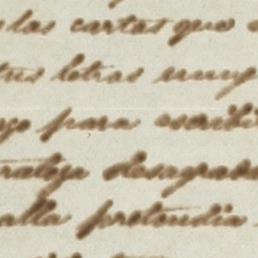 las cartas que
tus letras muy
para escribi
desagrada
alla pretendia